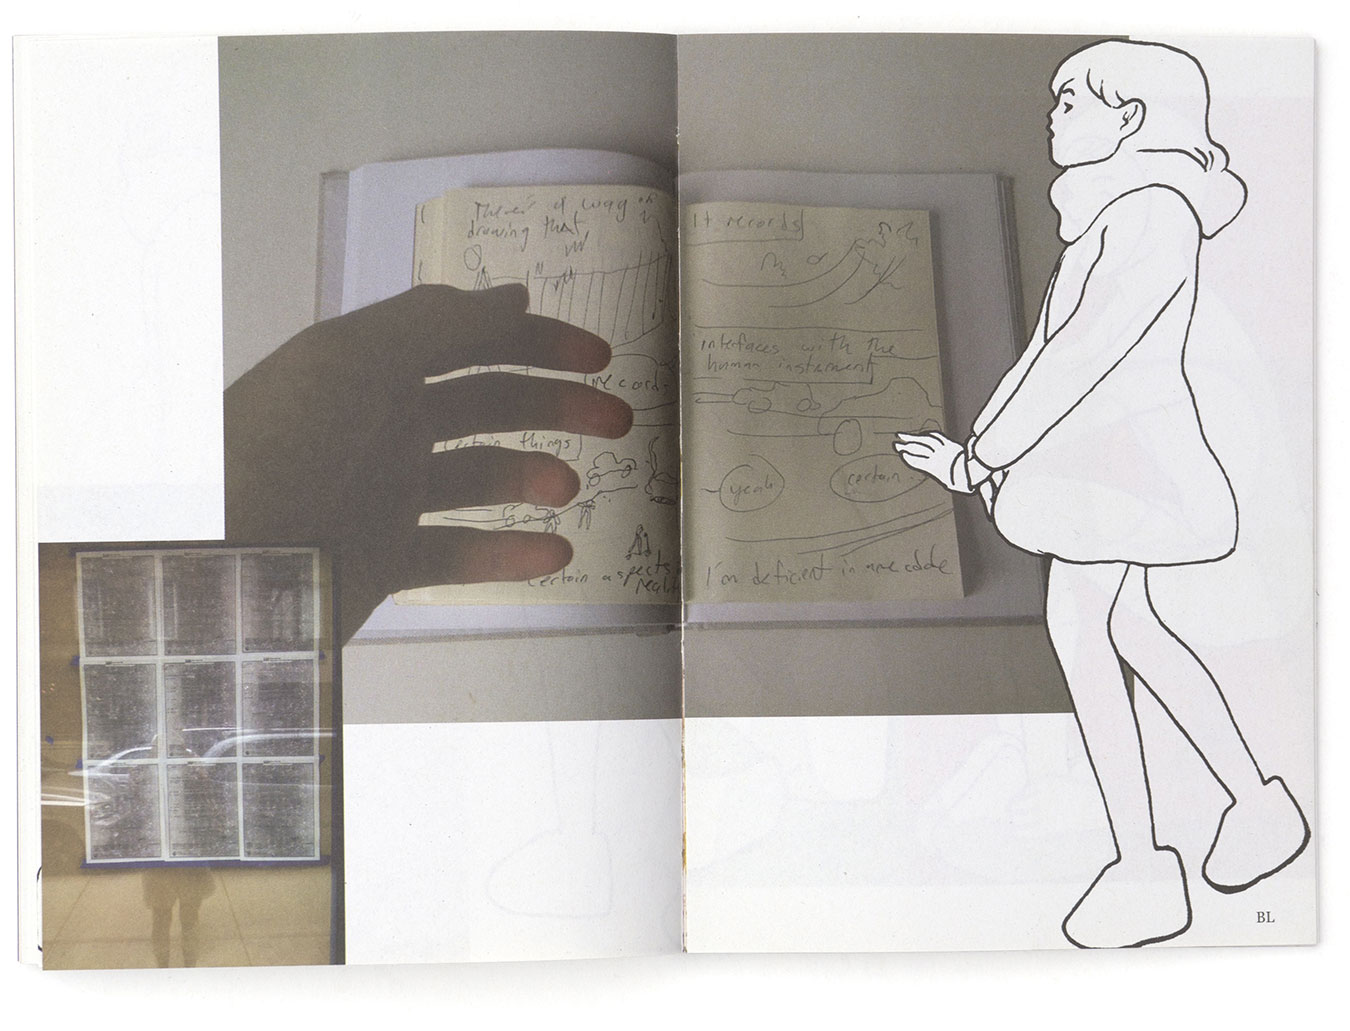 There's a way of
drawing that
records
certain things
certain aspects
It records
interfaces with the
human instrument
yeah
certain
I'm deficient in
BL